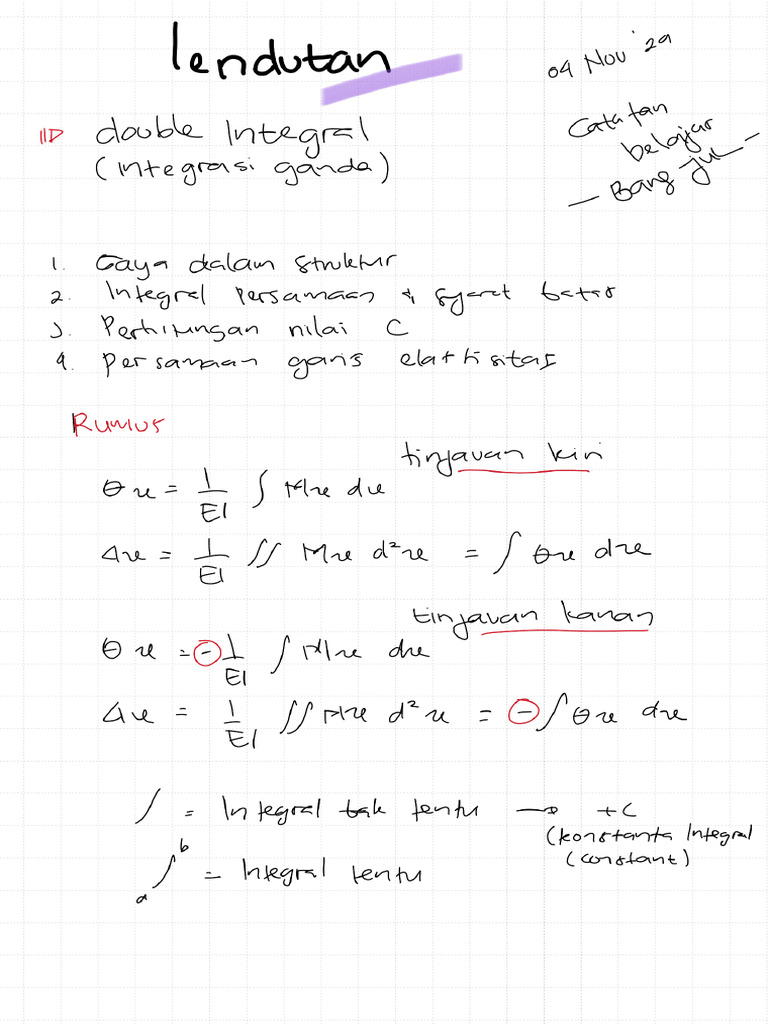 lendutan
04 Nov '24
Catatan
belajar
— Bang Jul —
double Integral
(integrasi ganda)
1. Gaya dalam struktur
2. Integral persamaan & syarat batas
3. Perhitungan nilai C
4. persamaan garis elastisitas
Rumus
tinjauan kiri
θx = 1/EI ∫ Mx dx
Δx = 1/EI ∬ Mx d²x = ∫ θx dx
tinjauan kanan
θx = - 1/EI ∫ Mx dx
Δx = 1/EI ∬ Mx d²x = - ∫ θx dx
∫ = Integral tak tentu → +C
(konstanta Integral
(constant)
∫ₐᵇ = Integral tentu